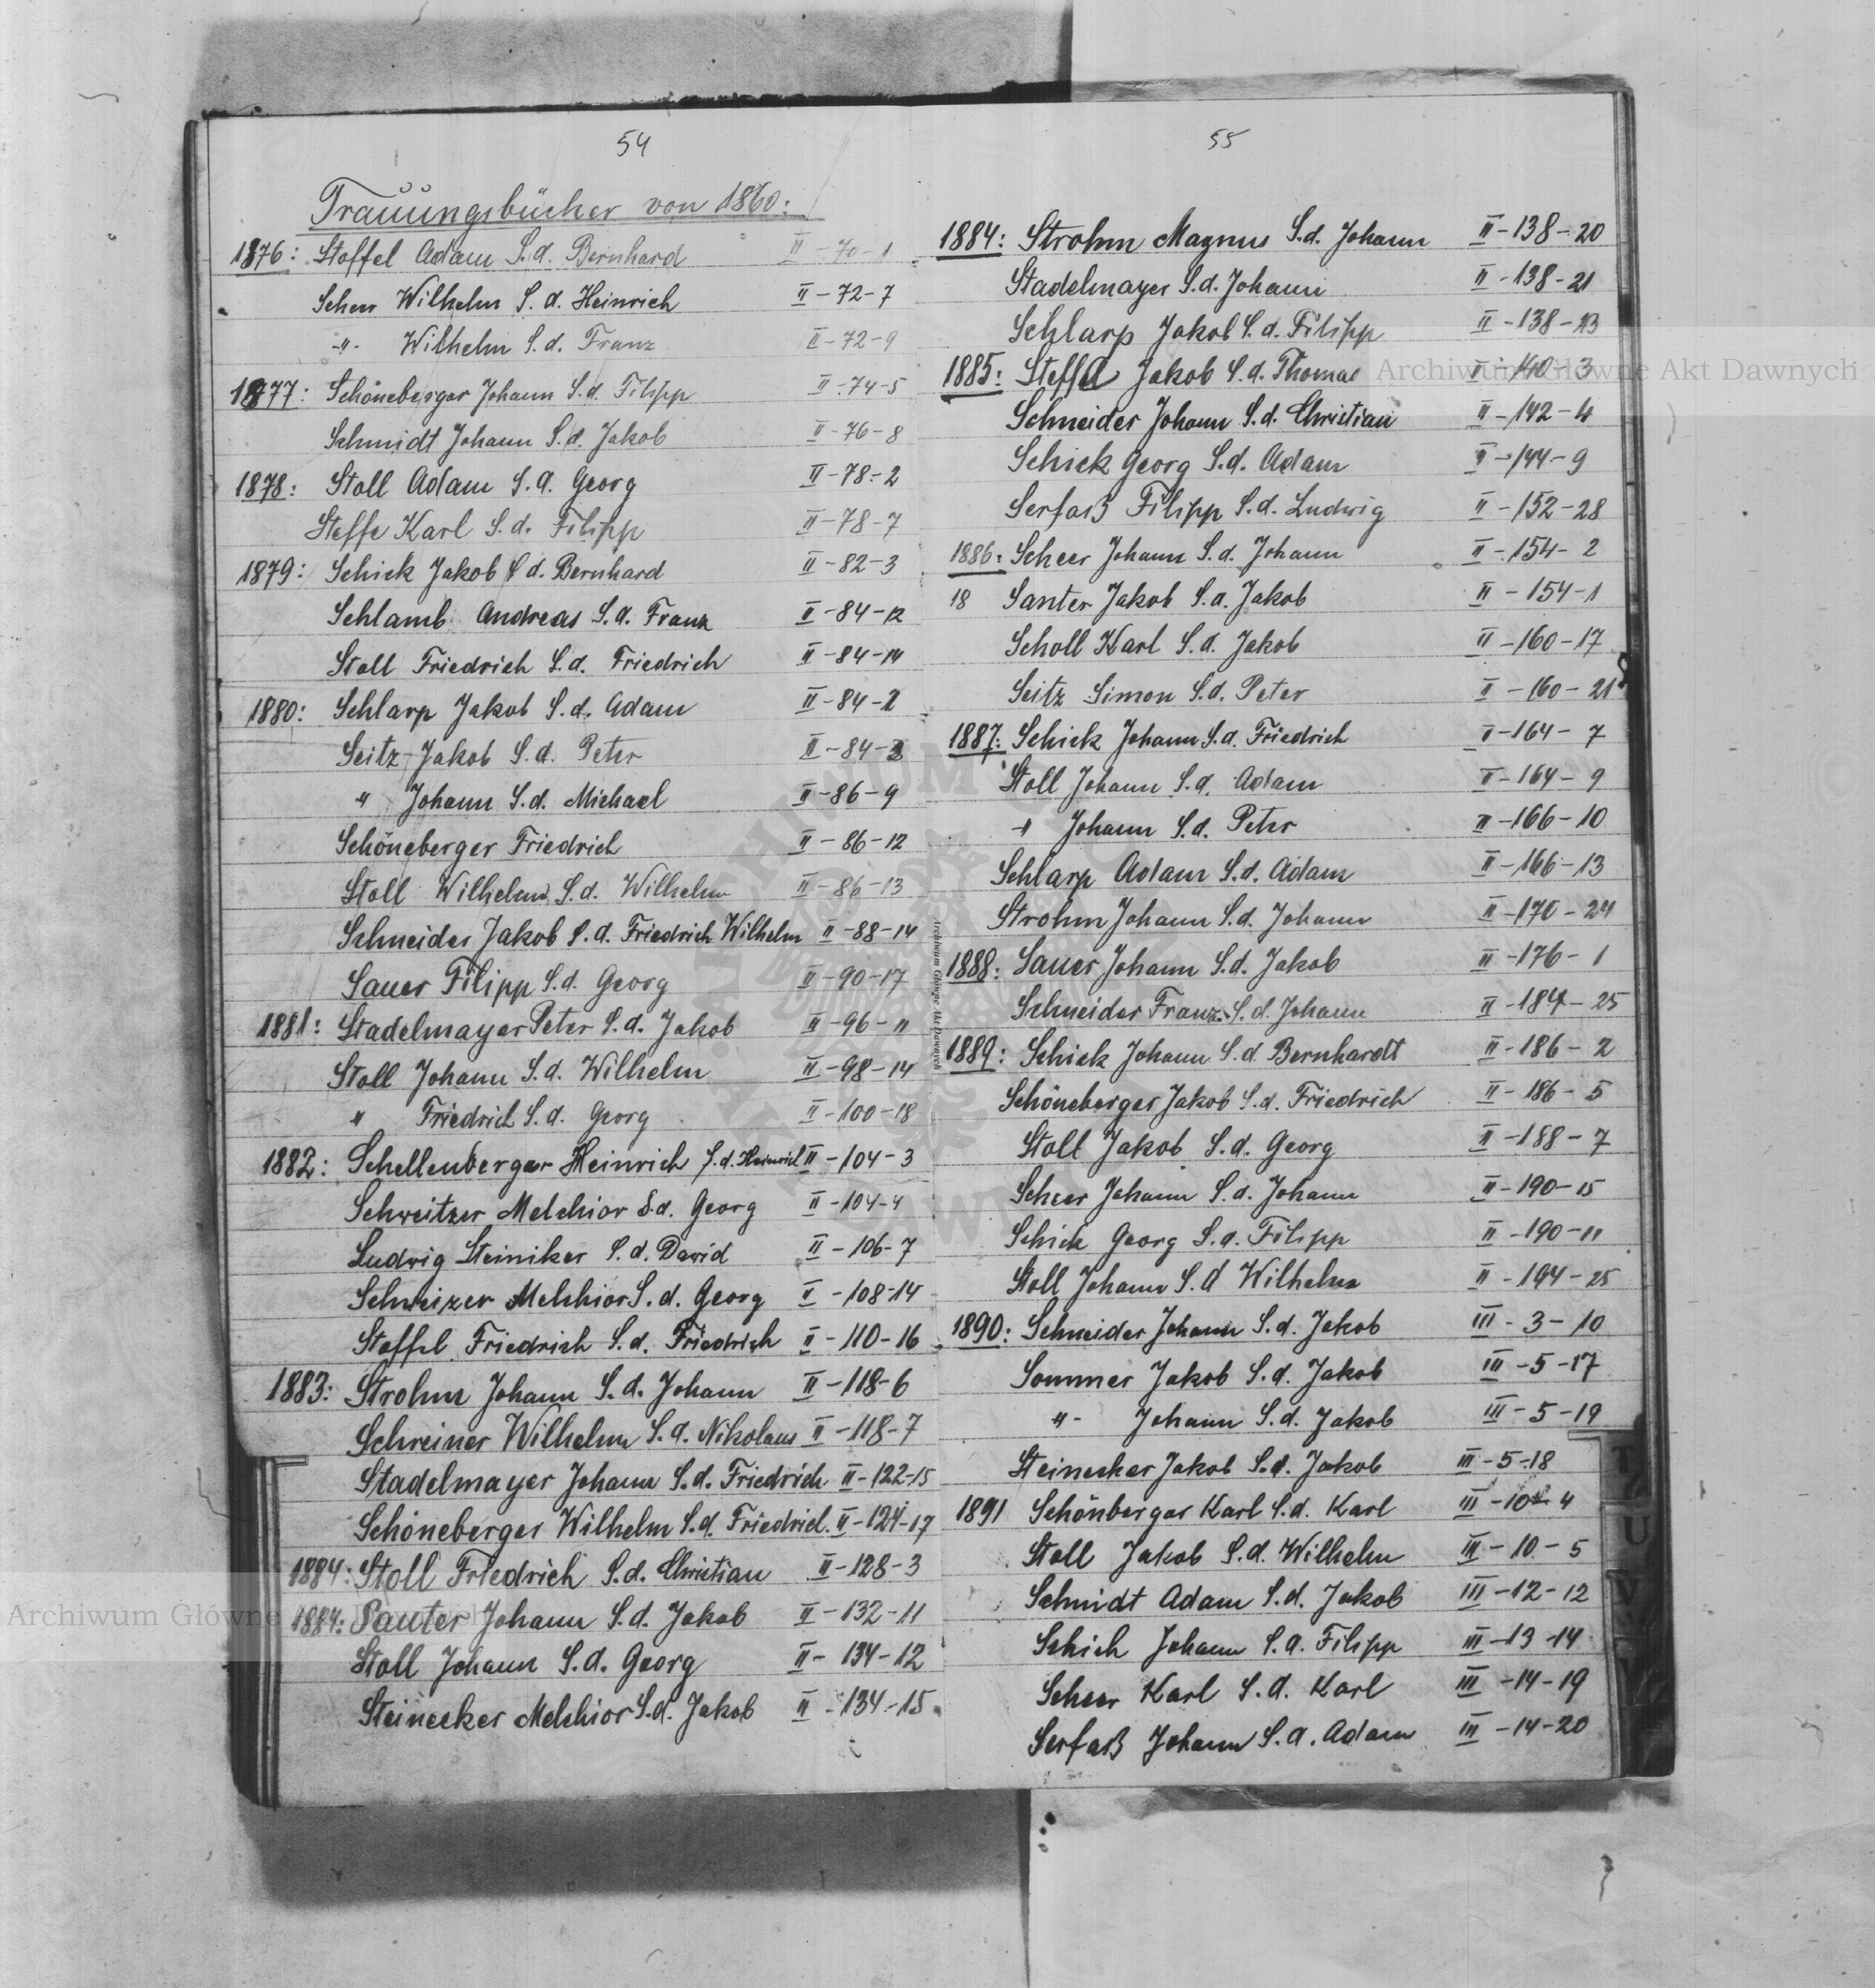 54
Trauungsbücher von 1860:
1876: Stoffel Adam S.d. Bernhard II-70-1
Scherr Wilhelm S.d. Heinrich II-72-7
-"- Wilhelm S.d. Franz II-72-9
1877: Schöneberger Johann S.d. Filipp II-74-5
Schmidt Johann S.d. Jakob II-76-8
1878: Stoll Adam S.d. Georg II-78-2
Steffe Karl S.d. Filipp II-78-7
1879: Schick Jakob S.d. Bernhard II-82-3
Schlamb Andreas S.d. Franz II-84-12
Stoll Friedrich S.d. Friedrich II-84-14
1880: Schlarp Jakob S.d. Adam II-84-2
Seitz Jakob S.d. Peter II-84-3
" Johann S.d. Michael II-86-9
Schöneberger Friedrich II-86-12
Stoll Wilhelm S.d. Wilhelm II-86-13
Schneider Jakob S.d. Friedrich Wilhelm II-88-14
Sauer Filipp S.d. Georg II-90-17
1881: Stadelmayer Peter S.d. Jakob II-96-11
Stoll Johann S.d. Wilhelm II-98-14
" Friedrich S.d. Georg II-100-18
1882: Schellenberger Heinrich S.d. Heinrich II-104-3
Schweitzer Melchior S.d. Georg II-104-4
Ludwig Steiniker S.d. David II-106-7
Schweizer Melchior S.d. Georg II-108-14
Stoffel Friedrich S.d. Friedrich II-110-16
1883: Strohm Johann S.d. Johann II-118-6
Schreiner Wilhelm S.d. Nikolaus II-118-7
Stadelmayer Johann S.d. Friedrich II-122-15
Schöneberger Wilhelm S.d. Friedrich II-124-17
1884: Stoll Friedrich S.d. Christian II-128-3
1884: Sauter Johann S.d. Jakob II-132-11
Stoll Johann S.d. Georg II-134-12
Steinecker Melchior S.d. Jakob II-134-15
55
1884: Strohm Magnus S.d. Johann II-138-20
Stadelmayer S.d. Johann II-138-21
Schlarp Jakob S.d. Filipp II-138-23
1885: Steffel Jakob S.d. Thomas II-140-3
Schneider Johann S.d. Christian II-142-4
Schick Georg S.d. Adam II-144-9
Serfaß Filipp S.d. Ludwig II-152-28
1886: Scheer Johann S.d. Johann II-154-2
18 Santer Jakob S.d. Jakob II-154-1
Scholl Karl S.d. Jakob II-160-17
Seitz Simon S.d. Peter II-160-21
1887: Schick Johann S.d. Friedrich II-164-7
Stoll Johann S.d. Adam II-164-9
" Johann S.d. Peter II-166-10
Schlarp Adam S.d. Adam II-166-13
Strohm Johann S.d. Johann II-170-24
1888: Sauer Johann S.d. Jakob II-176-1
Schneider Franz S.d. Johann II-184-25
1889: Schick Johann S.d. Bernhardt II-186-2
Schöneberger Jakob S.d. Friedrich II-186-5
Stoll Jakob S.d. Georg II-188-7
Scheer Johann S.d. Johann II-190-15
Schick Georg S.d. Filipp II-190-11
Stoll Johann S.d. Wilhelm II-194-25
1890: Schneider Johann S.d. Jakob III-3-10
Sommer Jakob S.d. Jakob III-5-17
"- Johann S.d. Jakob III-5-19
Steinecker Jakob S.d. Jakob III-5-18
1891 Schönberger Karl S.d. Karl III-10-4
Stoll Jakob S.d. Wilhelm III-10-5
Schmidt Adam S.d. Jakob III-12-12
Schich Johann S.d. Filipp III-13-14
Scheer Karl S.d. Karl III-14-19
Serfaß Johann S.d. Adam III-14-20
T
U
V
Archiwum Główne Akt Dawnych
Archiwum Główne
Archiwum Główne Akt Dawnych